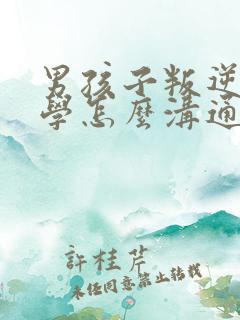 男孩子叛逆
學怎麼溝通
許桂芹
未經同意禁止轉載